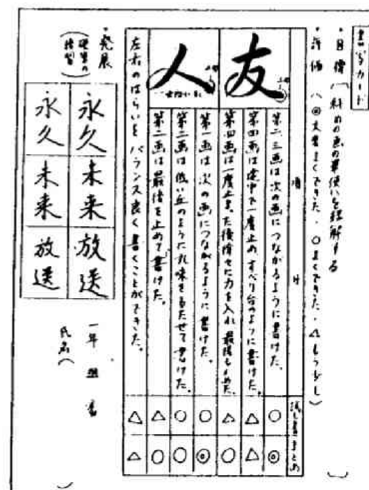 書写カード
・目標（斜めの画の筆使いを理解する　）
・評価（◎大変よくできた．○よくできた．△もう少し）
項目
試し書き
まとめ
友
第二、三画は次の画につながるように書けた。
○
◎
第四画は途中で一度止め、すべり台のように書けた。
△
△
第四画は一度止まった後徐々に力を入れ最後も止めた。
△
○
人
第一画は次の画につながるように書けた。
○
◎
第二画は低い丘のように丸味をもたせて書けた。
○
○
第二画は最後を止めて書けた。
△
○
左右のはらいをバランス良く書くことができた。
△
△
・発展
（硬筆の練習）
永久
未来
放送
永久
未来
放送
一年　組　番
氏名（　）